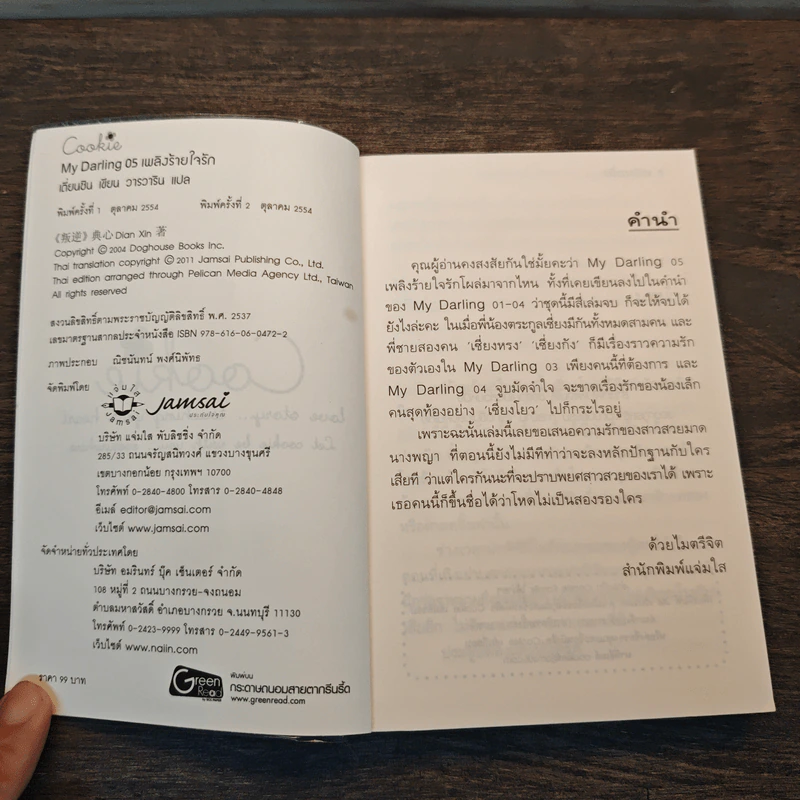 Cookie
My Darling 05 เพลิงร้ายใจรัก
เตี่ยนซิน เขียน วารวาริน แปล
พิมพ์ครั้งที่ 1 ตุลาคม 2554 พิมพ์ครั้งที่ 2 ตุลาคม 2554
《叛逆》典心 Dian Xin 著
Copyright © 2004 Doghouse Books Inc.
Thai translation copyright © 2011 Jamsai Publishing Co., Ltd.
Thai edition arranged through Pelican Media Agency Ltd., Taiwan
All rights reserved
สงวนลิขสิทธิ์ตามพระราชบัญญัติลิขสิทธิ์ พ.ศ. 2537
เลขมาตรฐานสากลประจำหนังสือ ISBN 978-616-06-0472-2
ภาพประกอบ ณิชนันทน์ พงศ์นิพัทธ
จัดพิมพ์โดย
แจ่มใส
JAMSAI
Jamsai
บริษัท แจ่มใส พับลิชชิ่ง จำกัด
285/33 ถนนจรัญสนิทวงศ์ แขวงบางขุนศรี
เขตบางกอกน้อย กรุงเทพฯ 10700
โทรศัพท์ 0-2840-4800 โทรสาร 0-2840-4848
อีเมล์ editor@jamsai.com
เว็บไซต์ www.jamsai.com
จัดจำหน่ายทั่วประเทศโดย
บริษัท อมรินทร์ บุ๊ค เซ็นเตอร์ จำกัด
108 หมู่ที่ 2 ถนนบางกรวย-จงถนอม
ตำบลมหาสวัสดิ์ อำเภอบางกรวย จ.นนทบุรี 11130
โทรศัพท์ 0-2423-9999 โทรสาร 0-2449-9561-3
เว็บไซต์ www.naiin.com
ราคา 99 บาท
Green Read
พิมพ์บน
กระดาษถนอมสายตากรีนรี้ด
www.greenread.com
คำนำ
คุณผู้อ่านคงสงสัยกันใช่มั้ยคะว่า My Darling 05
เพลิงร้ายใจรักโผล่มาจากไหน ทั้งที่เคยเขียนลงไปในคำนำ
ของ My Darling 01-04 ว่าชุดนี้มีสี่เล่มจบ ก็จะให้จบได้
ยังไงล่ะคะ ในเมื่อพี่น้องตระกูลเซี่ยงมีกันทั้งหมดสามคน และ
พี่ชายสองคน ‘เซี่ยงหรง’ ‘เซี่ยงกัง’ ก็มีเรื่องราวความรัก
ของตัวเองใน My Darling 03 เพียงคนนี้ที่ต้องการ และ
My Darling 04 จูบมัดจำใจ จะขาดเรื่องรักของน้องเล็ก
คนสุดท้องอย่าง ‘เซี่ยงโยว’ ไปก็กระไรอยู่
เพราะฉะนั้นเล่มนี้เลยขอเสนอความรักของสาวสวยมาด
นางพญา ที่ตอนนี้ยังไม่มีทีท่าว่าจะลงหลักปักฐานกับใคร
เสียที ว่าแต่ใครกันนะที่จะปราบพยศสาวสวยของเราได้ เพราะ
เธอคนนี้ก็ขึ้นชื่อได้ว่าโหดไม่เป็นสองรองใคร
ด้วยไมตรีจิต
สำนักพิมพ์แจ่มใส